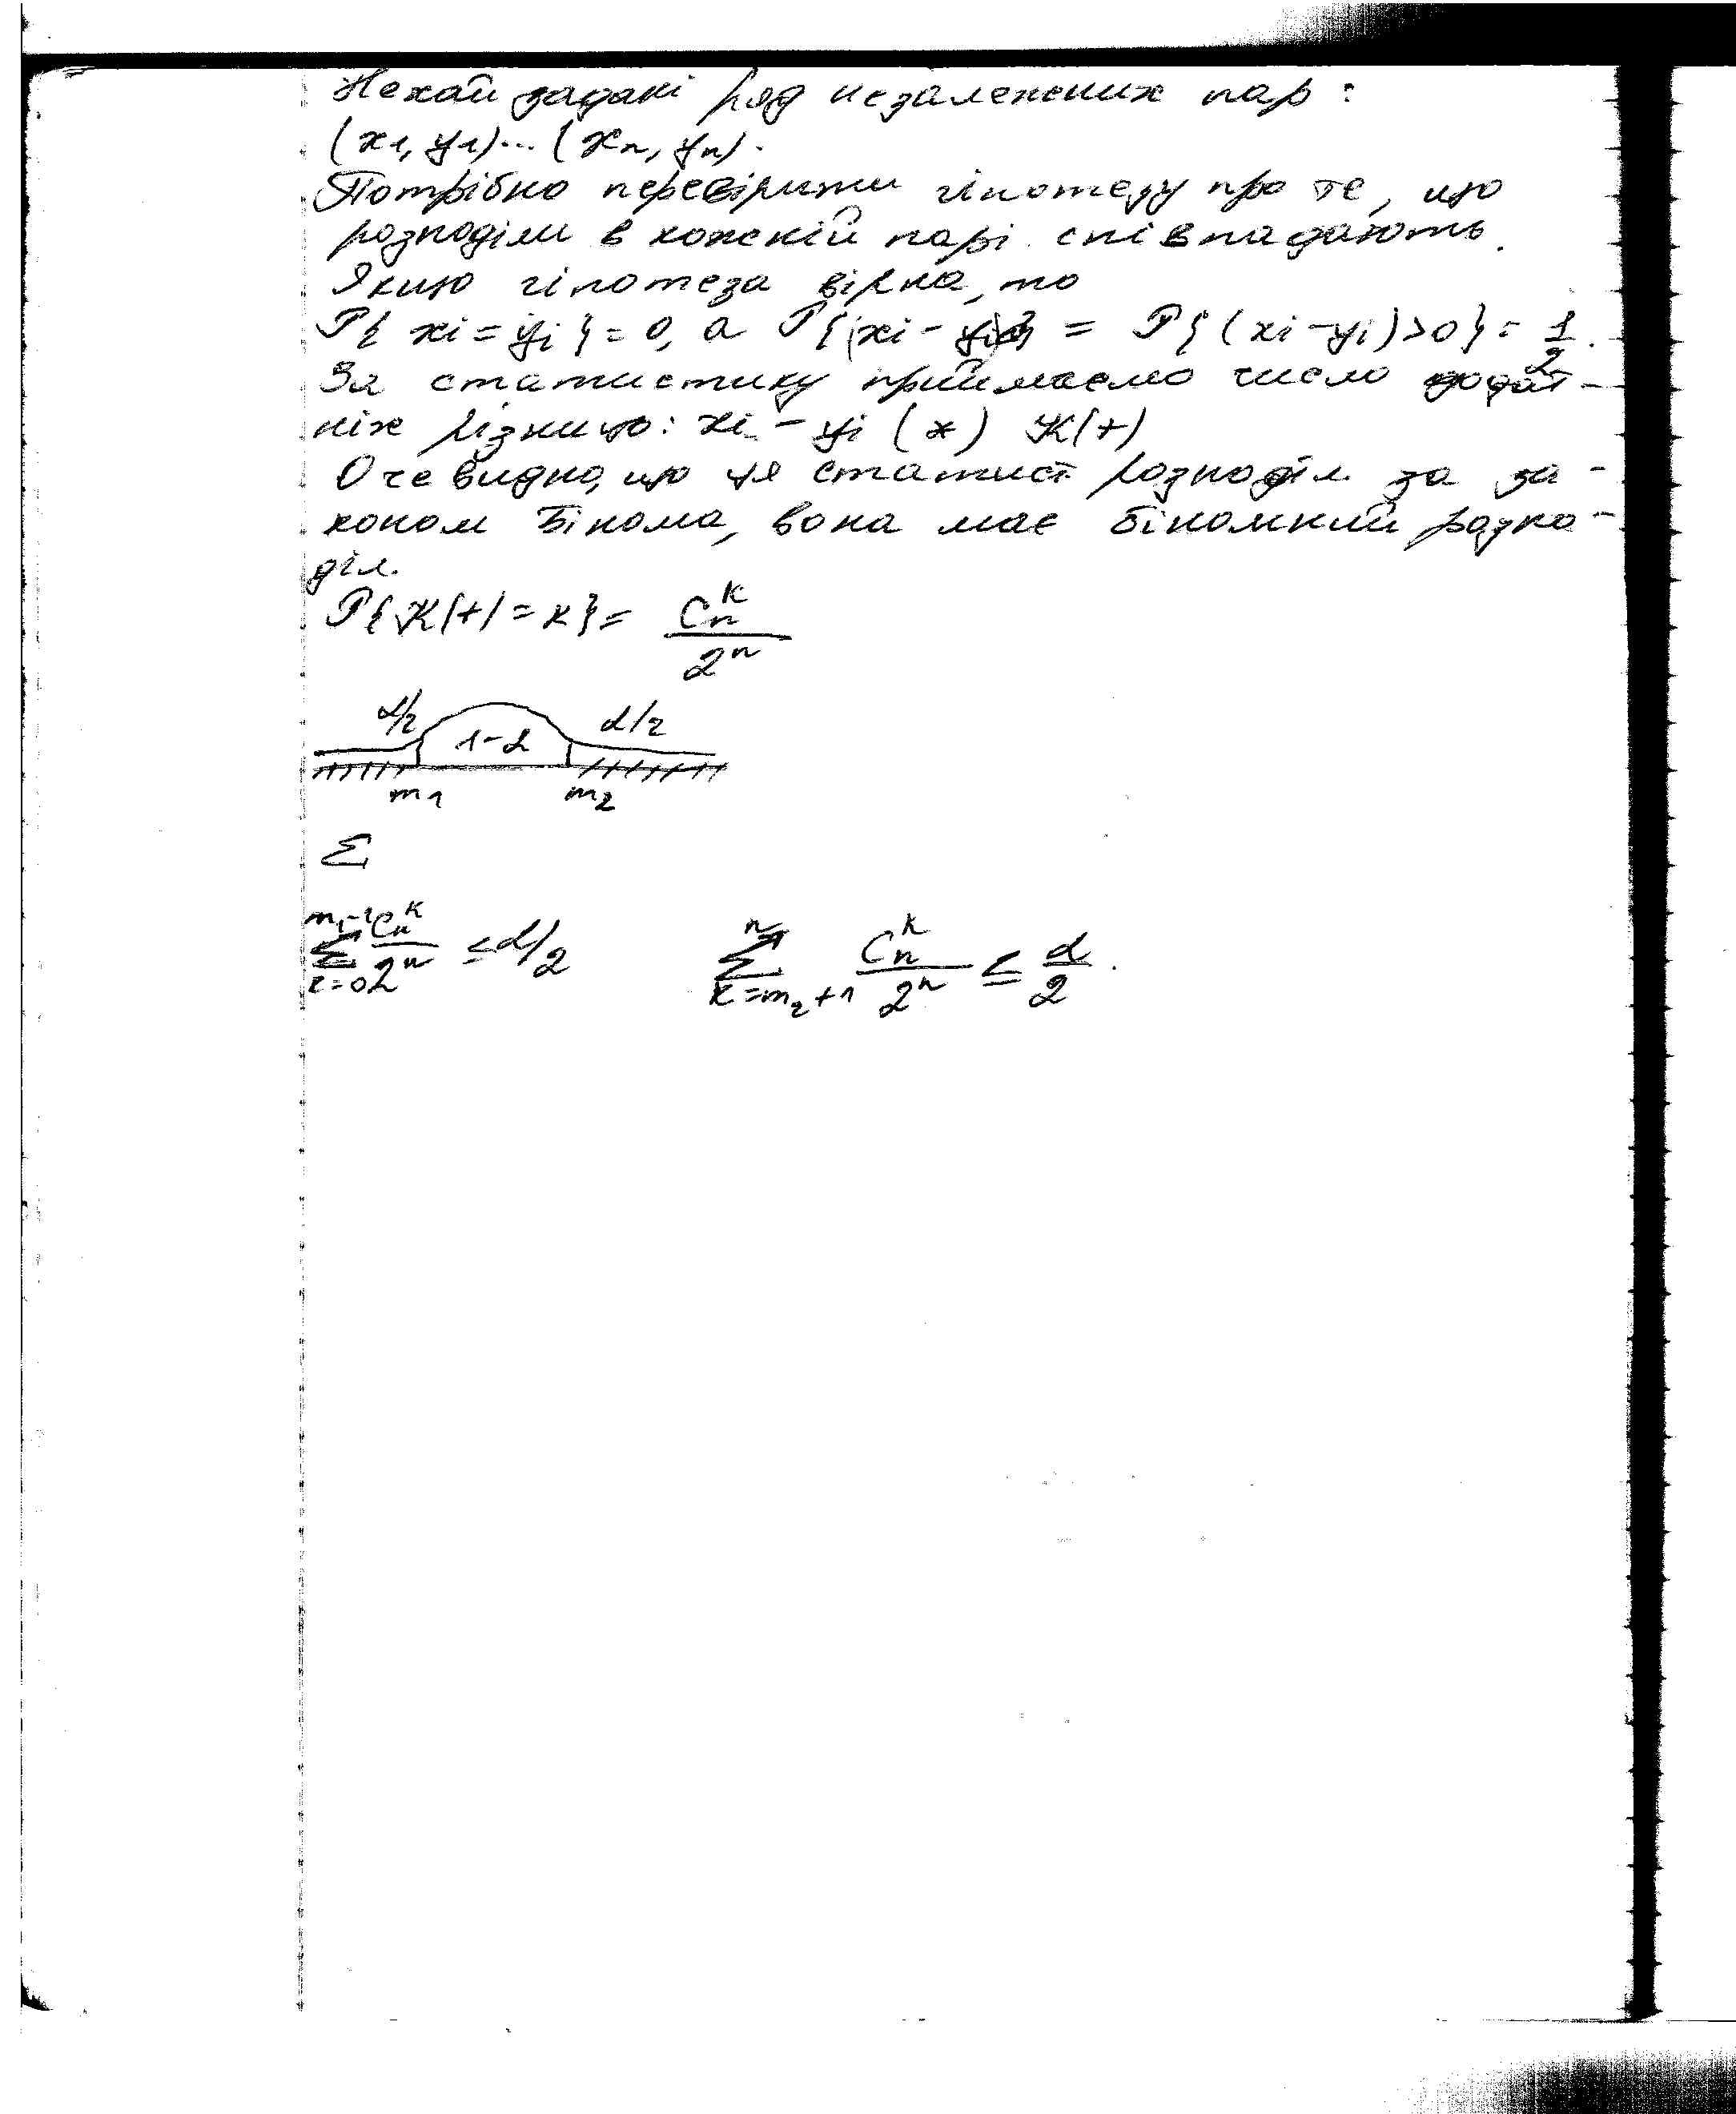 Нехай задані ряд незалежних пар:
(x1, y1)... (xn, yn).
Потрібно перевірити гіпотезу про те, що
розподіли в кожній парі співпадають.
Якщо гіпотеза вірна, то
P{ xi = yi } = 0, а P{(xi - yi) = P{ (xi - yi) > 0} = 1/2.
За статистику приймаємо число додат-
ніх різниць: xi - yi (*) K(+)
Очевидно, що ця статист. розподіл. за за-
коном Бінома, вона має біномний розпо-
діл.
P{K(+) = k} = C_n^k / 2^n
α/2 1-α α/2
m1 m2
Σ
Σ_{k=0}^{m1-1} C_n^k / 2^n ≤ α/2 Σ_{k=m2+1}^{n} C_n^k / 2^n ≤ α/2.